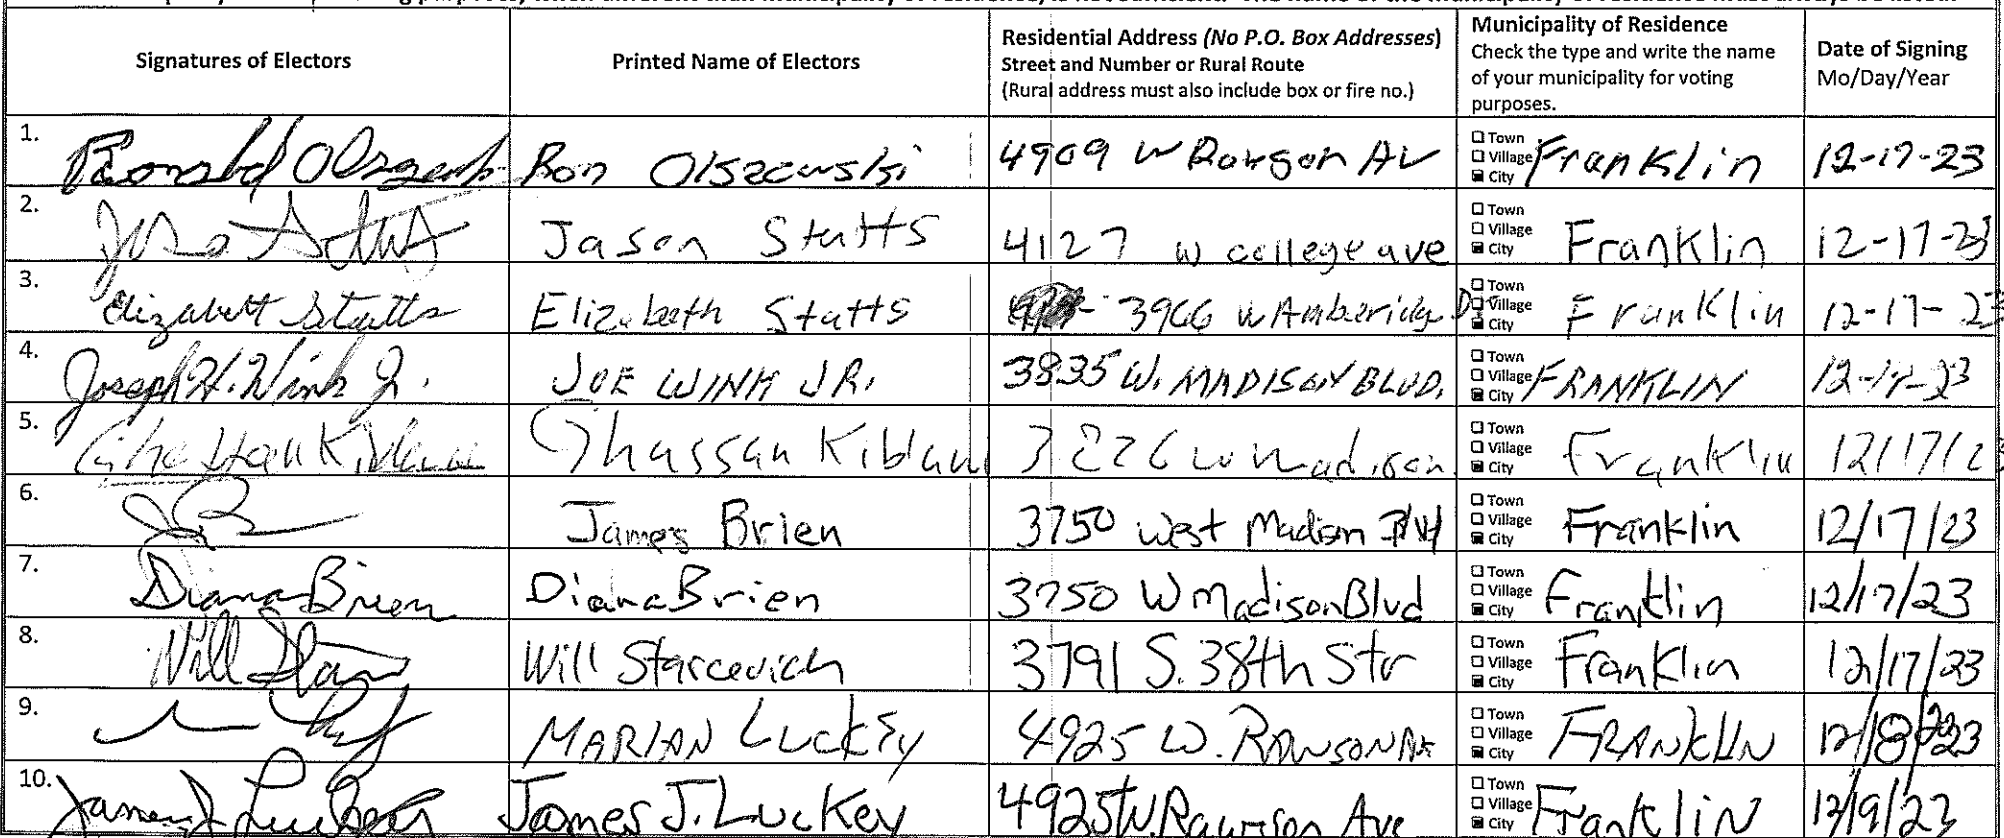 Signatures of Electors
Printed Name of Electors
Residential Address (No P.O. Box Addresses)
Street and Number or Rural Route
(Rural address must also include box or fire no.)
Municipality of Residence
Check the type and write the name
of your municipality for voting
purposes.
Date of Signing
Mo/Day/Year
1. Ron Olszewski 4909 W Rawson AV Town Village City Franklin 12-17-23
2. Jason Statts 4127 w college ave Town Village City Franklin 12-17-23
3. Elizabeth Statts Elizabeth Statts 3966 w Amberidge Dr Town Village City Franklin 12-17-23
4. Joseph H. Wink Jr. JOE WINK JR. 3835 W. MADISON BLVD. Town Village City FRANKLIN 12-17-23
5. Ghassan Ghassan 3226 w madison Town Village City Franklin 12/17/23
6. James Brien 3750 West Madison Blvd Town Village City Franklin 12/17/23
7. Diana Brien Diana Brien 3750 W Madison Blvd Town Village City Franklin 12/17/23
8. Will Will Starcevich 3791 S. 38th Str Town Village City Franklin 12/17/23
9. MARIAN LUCKEY 4925 W. RAWSON AVE Town Village City FRANKLIN 12/18/23
10. James J. Luckey James J. Luckey 4925 W. Rawson Ave Town Village City Franklin 12/19/23